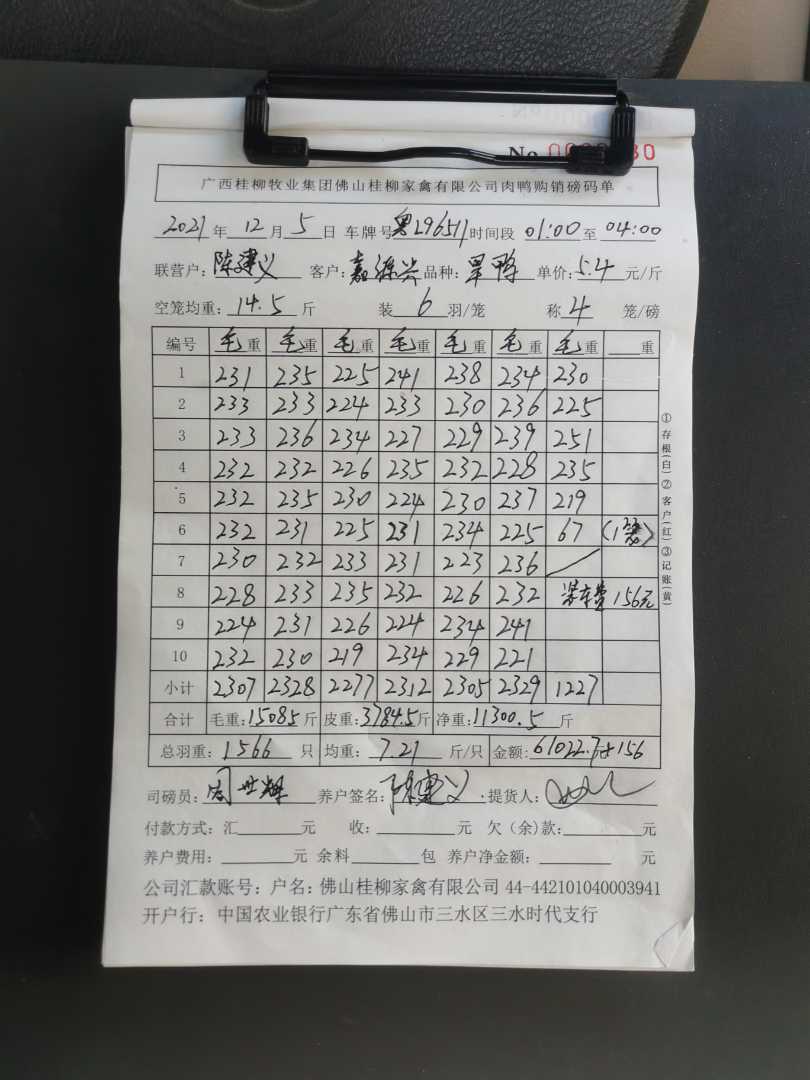 No 0
广西桂柳牧业集团佛山桂柳家禽有限公司肉鸭购销磅码单
2021年 12月 5日 车牌号粤L96511时间段 01:00至 04:00
联营户：陈建义 客户： 品种： 鸭 单价：5.4元/斤
空笼均重：14.5斤 装 6 羽/笼 称 4 笼/磅
编号 毛重 毛重 毛重 毛重 毛重 毛重 毛重 重
1 231 235 225 241 238 234 230
2 233 233 224 233 230 236 225
3 233 236 234 227 229 239 251
4 232 232 226 235 232 228 235
5 232 235 230 224 230 237 219
6 232 231 225 231 234 225 67
7 230 232 233 231 223 236
8 228 233 235 232 226 232 装车费 156元
9 224 231 226 224 234 241
10 232 230 219 234 229 221
小计 2307 2328 2277 2312 2305 2329 1227
合计 毛重：15085斤 皮重：3784.5斤 净重：11300.5斤
总羽重：1566只 均重：7.21斤/只 金额：61022.7+156
司磅员：周世辉 养户签名：陈建义 提货人：
付款方式：汇 元 收： 元 欠（余）款： 元
养户费用： 元 余料 包 养户净金额： 元
公司汇款账号：户名：佛山桂柳家禽有限公司 44-442101040003941
开户行：中国农业银行广东省佛山市三水区三水时代支行
①存根(白)②客户(红)③记账(黄)